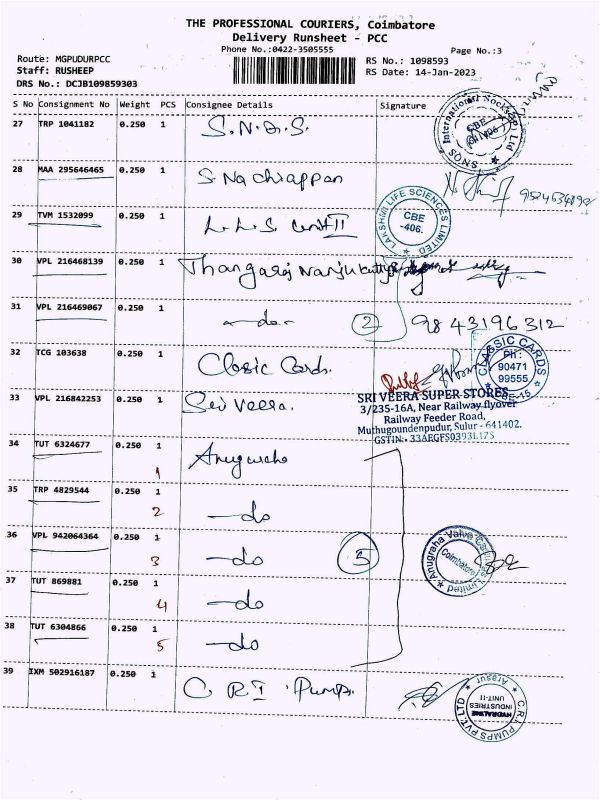 THE PROFESSIONAL COURIERS, Coimbatore
Delivery Runsheet - PCC
Phone No.:0422-3505555
Page No.:3
Route: MGPUDURPCC
RS No.: 1098593
Staff: RUSHEEP
RS Date: 14-Jan-2023
DRS No.: DCJB109859303
S No Consignment No Weight PCS Consignee Details Signature
27 TRP 1041182 0.250 1 S.N.Q.S.
SNQS International Socks (P) Ltd
CBE
28 MAA 295646465 0.250 1 S. Nachiappan
29 TVM 1532099 0.250 1 L.L.S. Unit II
LAKSHMI LIFE SCIENCES LIMITED
CBE
-406.
30 VPL 216468139 0.250 1 Thangaraj Nanjukutty
31 VPL 216469067 0.250 1 -do- 2 9843196312
32 TCG 103638 0.250 1 Clasic Cards.
CLASSIC CARDS
Ph :
90471
99555
CBE-15
33 VPL 216842253 0.250 1 Sri Veera.
SRI VEERA SUPER STORES
3/235-16A, Near Railway flyover
Railway Feeder Road,
Muthugoundenpudur, Sulur - 641402.
GSTIN:
34 TUT 6324677 0.250 1 Anugraha
1
35 TRP 4829544 0.250 1 -do
2
36 VPL 942064364 0.250 1 -do 5
3
Anugraha Valve Castings Limited
Coimbatore
37 TUT 869881 0.250 1 -do
4
38 TUT 6304866 0.250 1 -do
5
39 IXM 502916187 0.250 1 C R I Pumps.
C.R.I. PUMPS PVT. LTD
Arasur
HYDRALINE
INDUSTRIES
UNIT-II